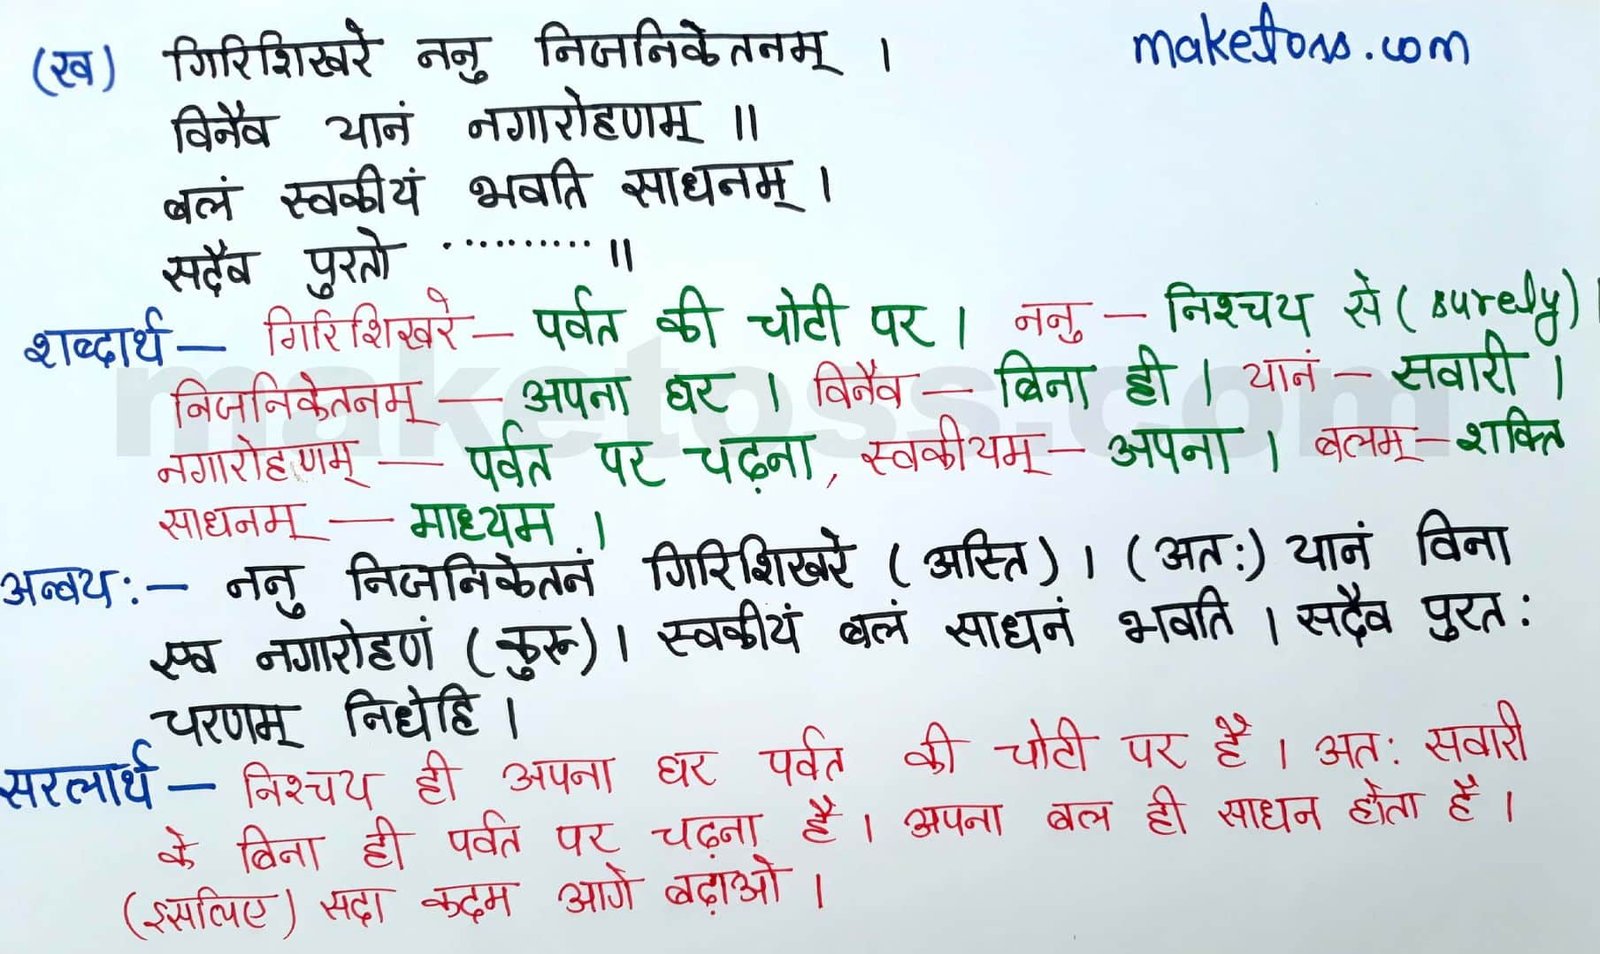 (ख) गिरिशिखरे ननु निजनिकेतनम् । maketoss.com
विनैव यानं नगारोहणम् ॥
बलं स्वकीयं भवति साधनम् ।
सदैव पुरतो .......... ॥
शब्दार्थ – गिरिशिखरे – पर्वत की चोटी पर । ननु – निश्चय से ( surely) ।
निजनिकेतनम् – अपना घर । विनैव – बिना ही । यानं – सवारी ।
नगारोहणम् – पर्वत पर चढ़ना, स्वकीयम् – अपना । बलम् – शक्ति
साधनम् – माध्यम ।
अन्वय: – ननु निजनिकेतनं गिरिशिखरे ( अस्ति ) । ( अत: ) यानं विना
एव नगारोहणं ( कुरू ) । स्वकीयं बलं साधनं भवति । सदैव पुरत:
चरणम् निधेहि ।
सरलार्थ – निश्चय ही अपना घर पर्वत की चोटी पर है । अत: सवारी
के बिना ही पर्वत पर चढ़ना है । अपना बल ही साधन होता है ।
(इसलिए) सदा कदम आगे बढ़ाओ ।
maketoss.com